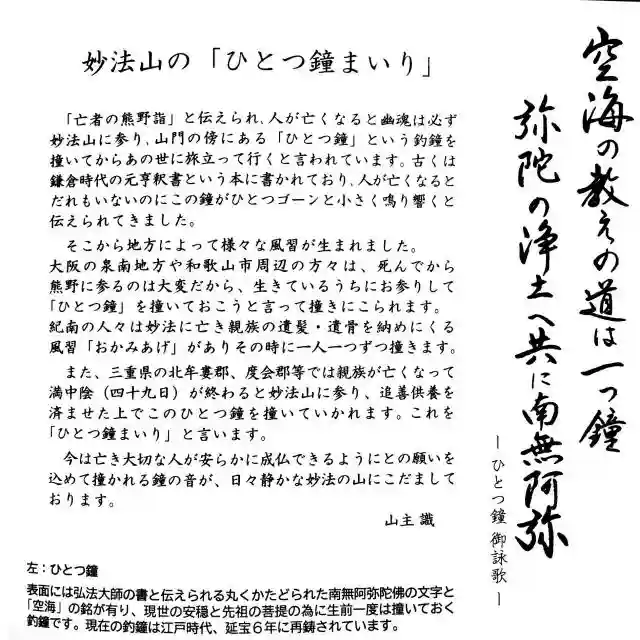 空海の教えの道は一つ鐘
弥陀の浄土へ共に南無阿弥
― ひとつ鐘 御詠歌 ―
妙法山の「ひとつ鐘まいり」
「亡者の熊野詣」と伝えられ、人が亡くなると幽魂は必ず
妙法山に参り、山門の傍にある「ひとつ鐘」という釣鐘を
撞いてからあの世に旅立って行くと言われています。古くは
鎌倉時代の元亨釈書という本に書かれており、人が亡くなると
だれもいないのにこの鐘がひとつゴーンと小さく鳴り響くと
伝えられてきました。
そこから地方によって様々な風習が生まれました。
大阪の泉南地方や和歌山市周辺の方々は、死んでから
熊野に参るのは大変だから、生きているうちにお参りして
「ひとつ鐘」を撞いておこうと言って撞きにこられます。
紀南の人々は妙法に亡き親族の遺髪・遺骨を納めにくる
風習「おかみあげ」がありその時に一人一つずつ撞きます。
また、三重県の北牟婁郡、度会郡等では親族が亡くなって
満中陰（四十九日）が終わると妙法山に参り、追善供養を
済ませた上でこのひとつ鐘を撞いていかれます。これを
「ひとつ鐘まいり」と言います。
今は亡き大切な人が安らかに成仏できるようにとの願いを
込めて撞かれる鐘の音が、日々静かな妙法の山にこだまして
おります。
山主 識
左：ひとつ鐘
表面には弘法大師の書と伝えられる丸くかたどられた南無阿弥陀佛の文字と
「空海」の銘が有り、現世の安穏と先祖の菩提の為に生前一度は撞いておく
釣鐘です。現在の釣鐘は江戸時代、延宝６年に再鋳されています。